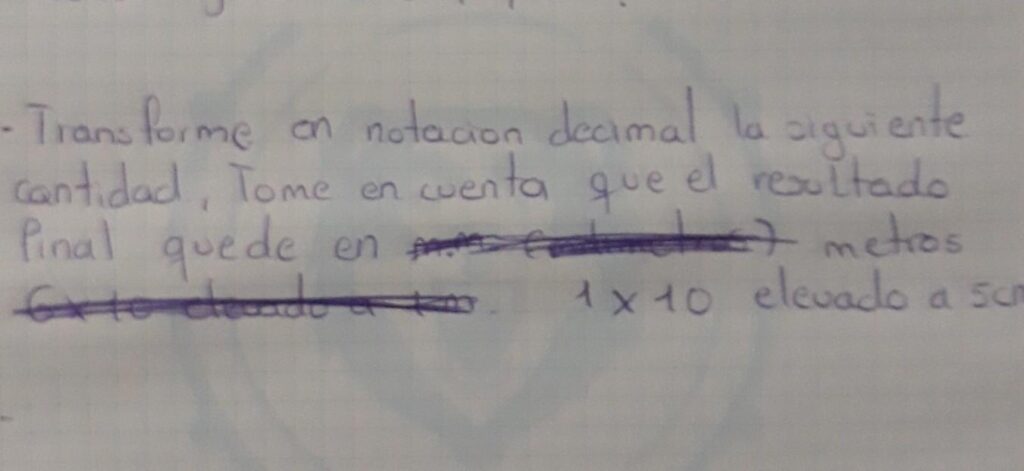 - Transforme en notacion decimal la siguiente
cantidad, Tome en cuenta que el resultado
final quede en metros
1 x 10 elevado a 5cm